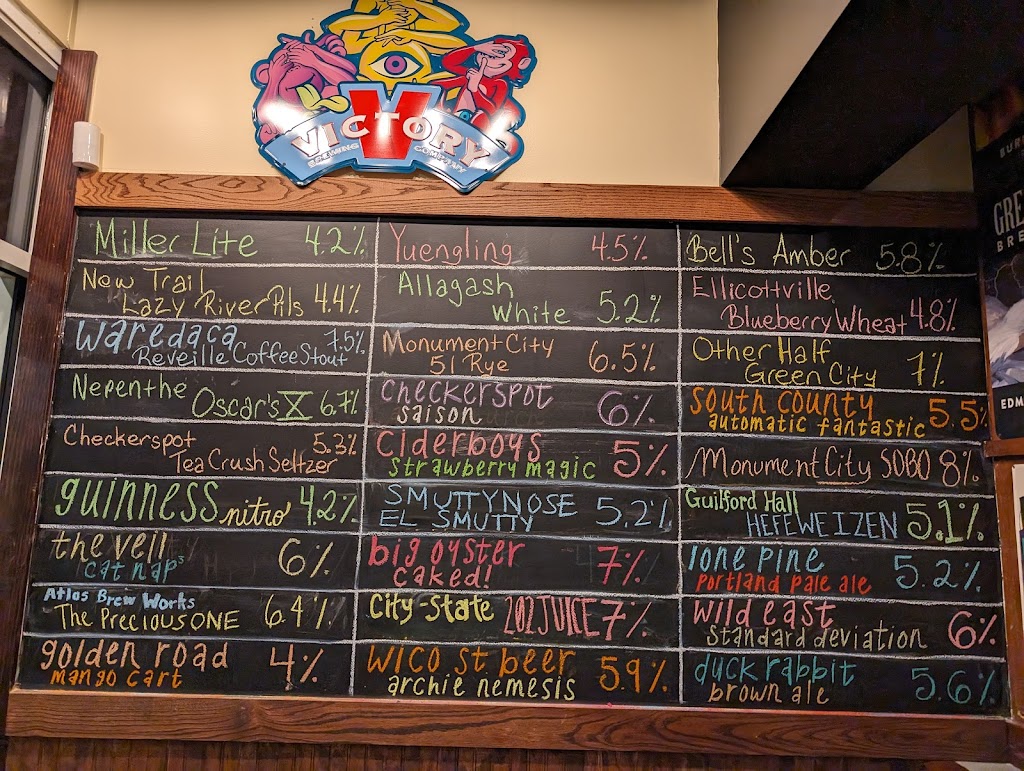 VICTORY
BREWING COMPANY
Miller Lite 4.2%
New Trail
Lazy River Pils 4.4%
Waredaca 7.5%
Reveille Coffee Stout
Nepenthe
Oscar's X 6.7%
Checkerspot 5.3%
Tea Crush Seltzer
guinness nitro 4.2%
the veil 6%
cat naps
Atlas Brew Works
The Precious ONE 6.4%
golden road 4%
mango cart
Yuengling 4.5%
Allagash
White 5.2%
Monument City
51 Rye 6.5%
checkerspot
saison 6%
ciderboys 5%
strawberry magic
SMUTTYNOSE 5.2%
EL SMUTTY
big oyster 7%
caked!
City-State 202 JUICE 7%
wico st beer 5.9%
archie nemesis
Bell's Amber 5.8%
Ellicottville
Blueberry Wheat 4.8%
Other Half
Green City 7%
south county 5.5%
automatic fantastic
Monument City SOBO 8%
Guilford Hall
HEFEWEIZEN 5.1%
lone pine 5.2%
portland pale ale
wild east 6%
standard deviation
duck rabbit 5.6%
brown ale
BUR
GRE
BRE
EDM